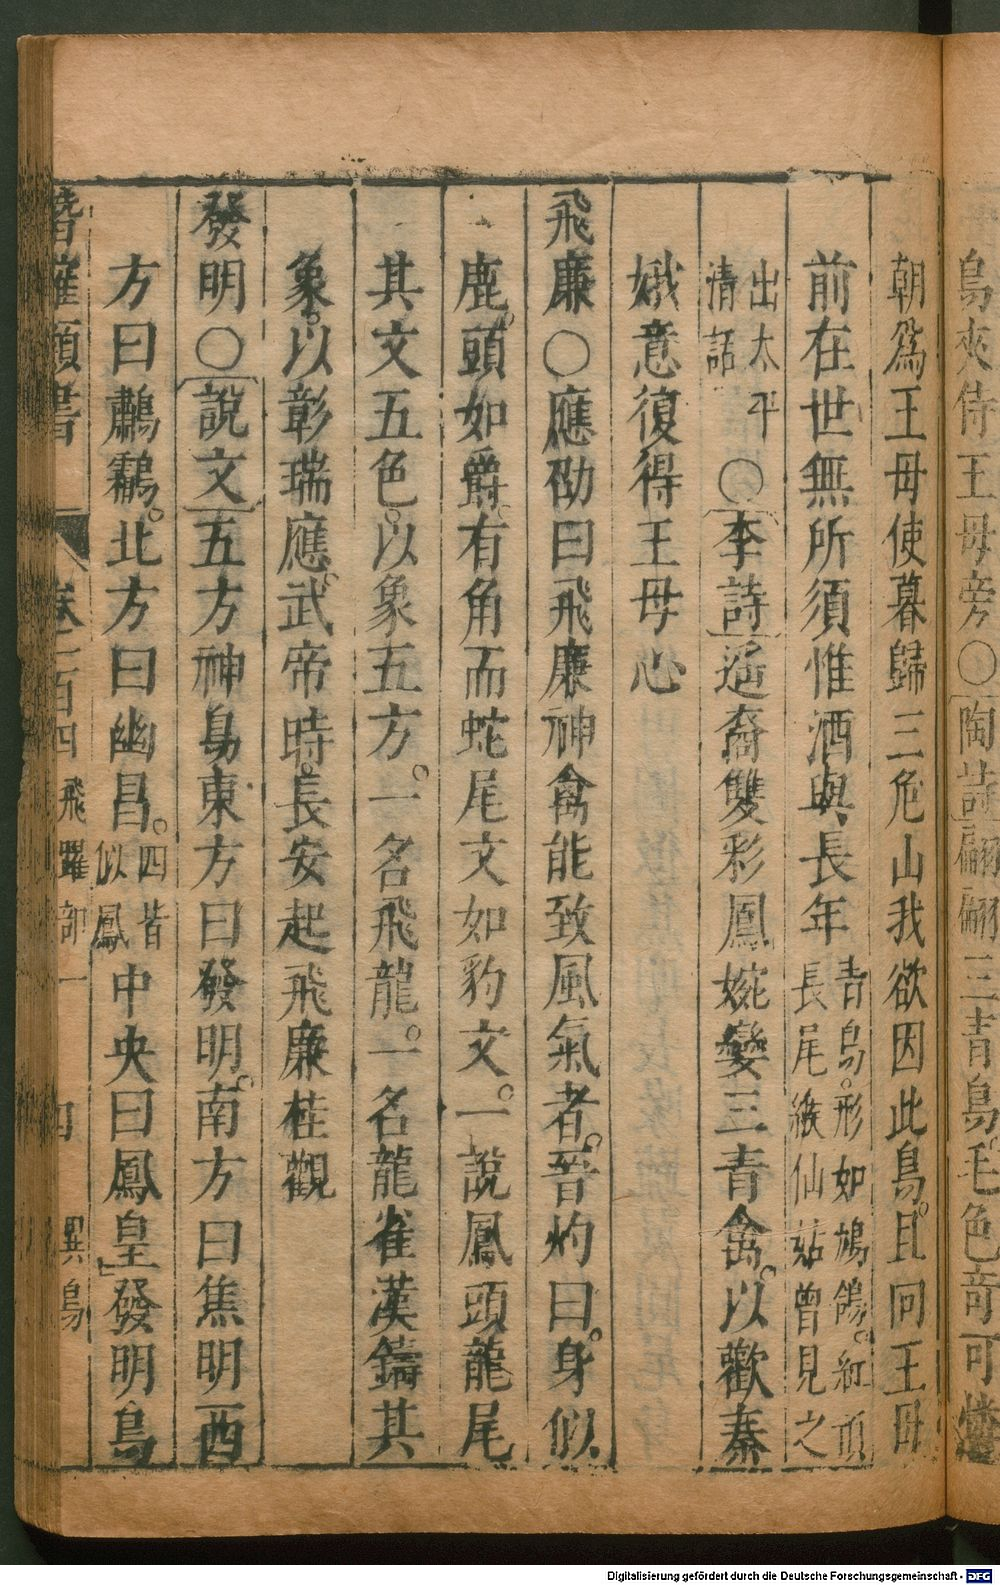 鳥夾侍王母旁〇陶詩翩翩三青鳥毛色奇可憐
朝爲王母使暮歸三危山我欲因此鳥。且向王母
前在世無所須惟酒與長年青鳥。形如鳩鴿。紅頂
長尾緱仙姑曾見之
出太平
清話〇李詩遥裔雙彩鳳婉孌三青禽。以歡秦
娥意復得王母心
飛廉〇應劭曰飛廉神禽能致風氣者。晉灼曰。身似
鹿。頭如爵。有角而蛇尾文如豹文。一說鳳頭龍尾
其文五色。以象五方。一名飛龍。一名龍雀漢鑄其
象。以彰瑞應。武帝時。長安起飛廉桂觀
發明〇說文五方神鳥東方曰發明。南方曰焦明西
方曰鷫鸘。北方曰幽昌。四皆
似鳳中央曰鳳皇發明鳥
潛確類書 卷一百四 飛躍部一 四 異鳥
Digitalisierung gefördert durch die Deutsche Forschungsgemeinschaft - DFG